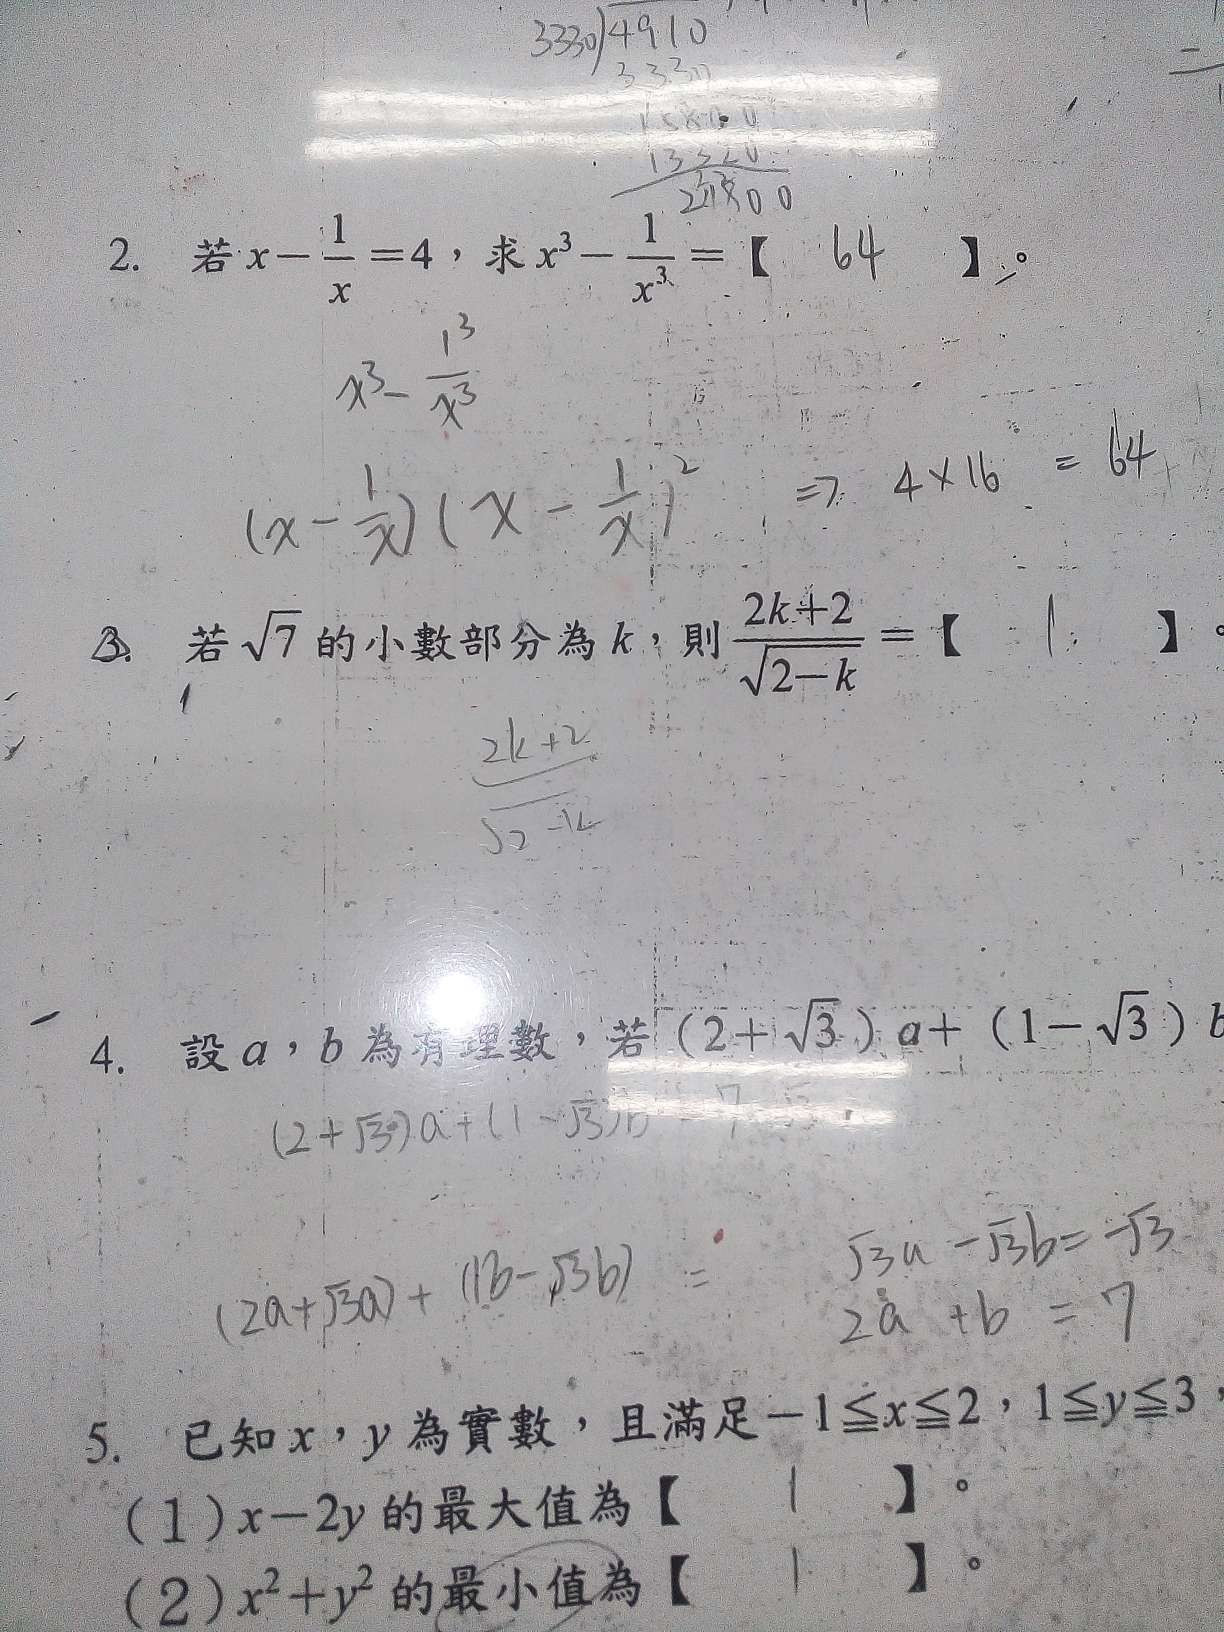 3330)4910
3330
13320
2. 若 x－1/x＝4，求 x³－1/x³＝【 64 】。
x³－1³/x³
(x－1/x)(x－1/x)² ⇒ 4×16 = 64
3. 若√7的小數部分為k，則 2k+2/√(2－k)＝【 1 】。
2k+2/√(2-k)
4. 設a，b為有理數，若（2＋√3）a＋（1－√3）b
(2+√3)a+(1-√3)b 7
(2a+√3a)+(1b-√3b) = √3a-√3b=-√3
2a+b=7
5. 已知x，y為實數，且滿足－1≦x≦2，1≦y≦3，
（1）x－2y的最大值為【 1 】。
（2）x²＋y²的最小值為【 1 】。